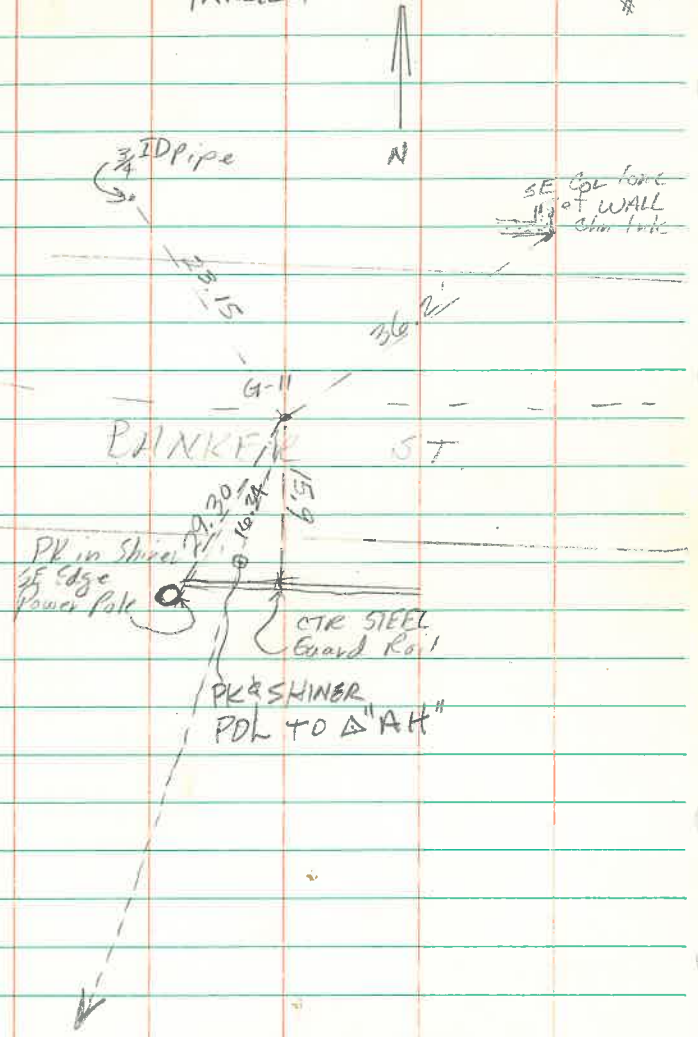 N
3/4 ID Pipe
SE
of WALL
23.15
36.2'
G-11
BANKER ST
29.30
16.34
15.9
PK in Shiner
SE Edge
Power Pole
CTR STEEL
Guard Rail
PK & SHINER
POL TO △"AH"